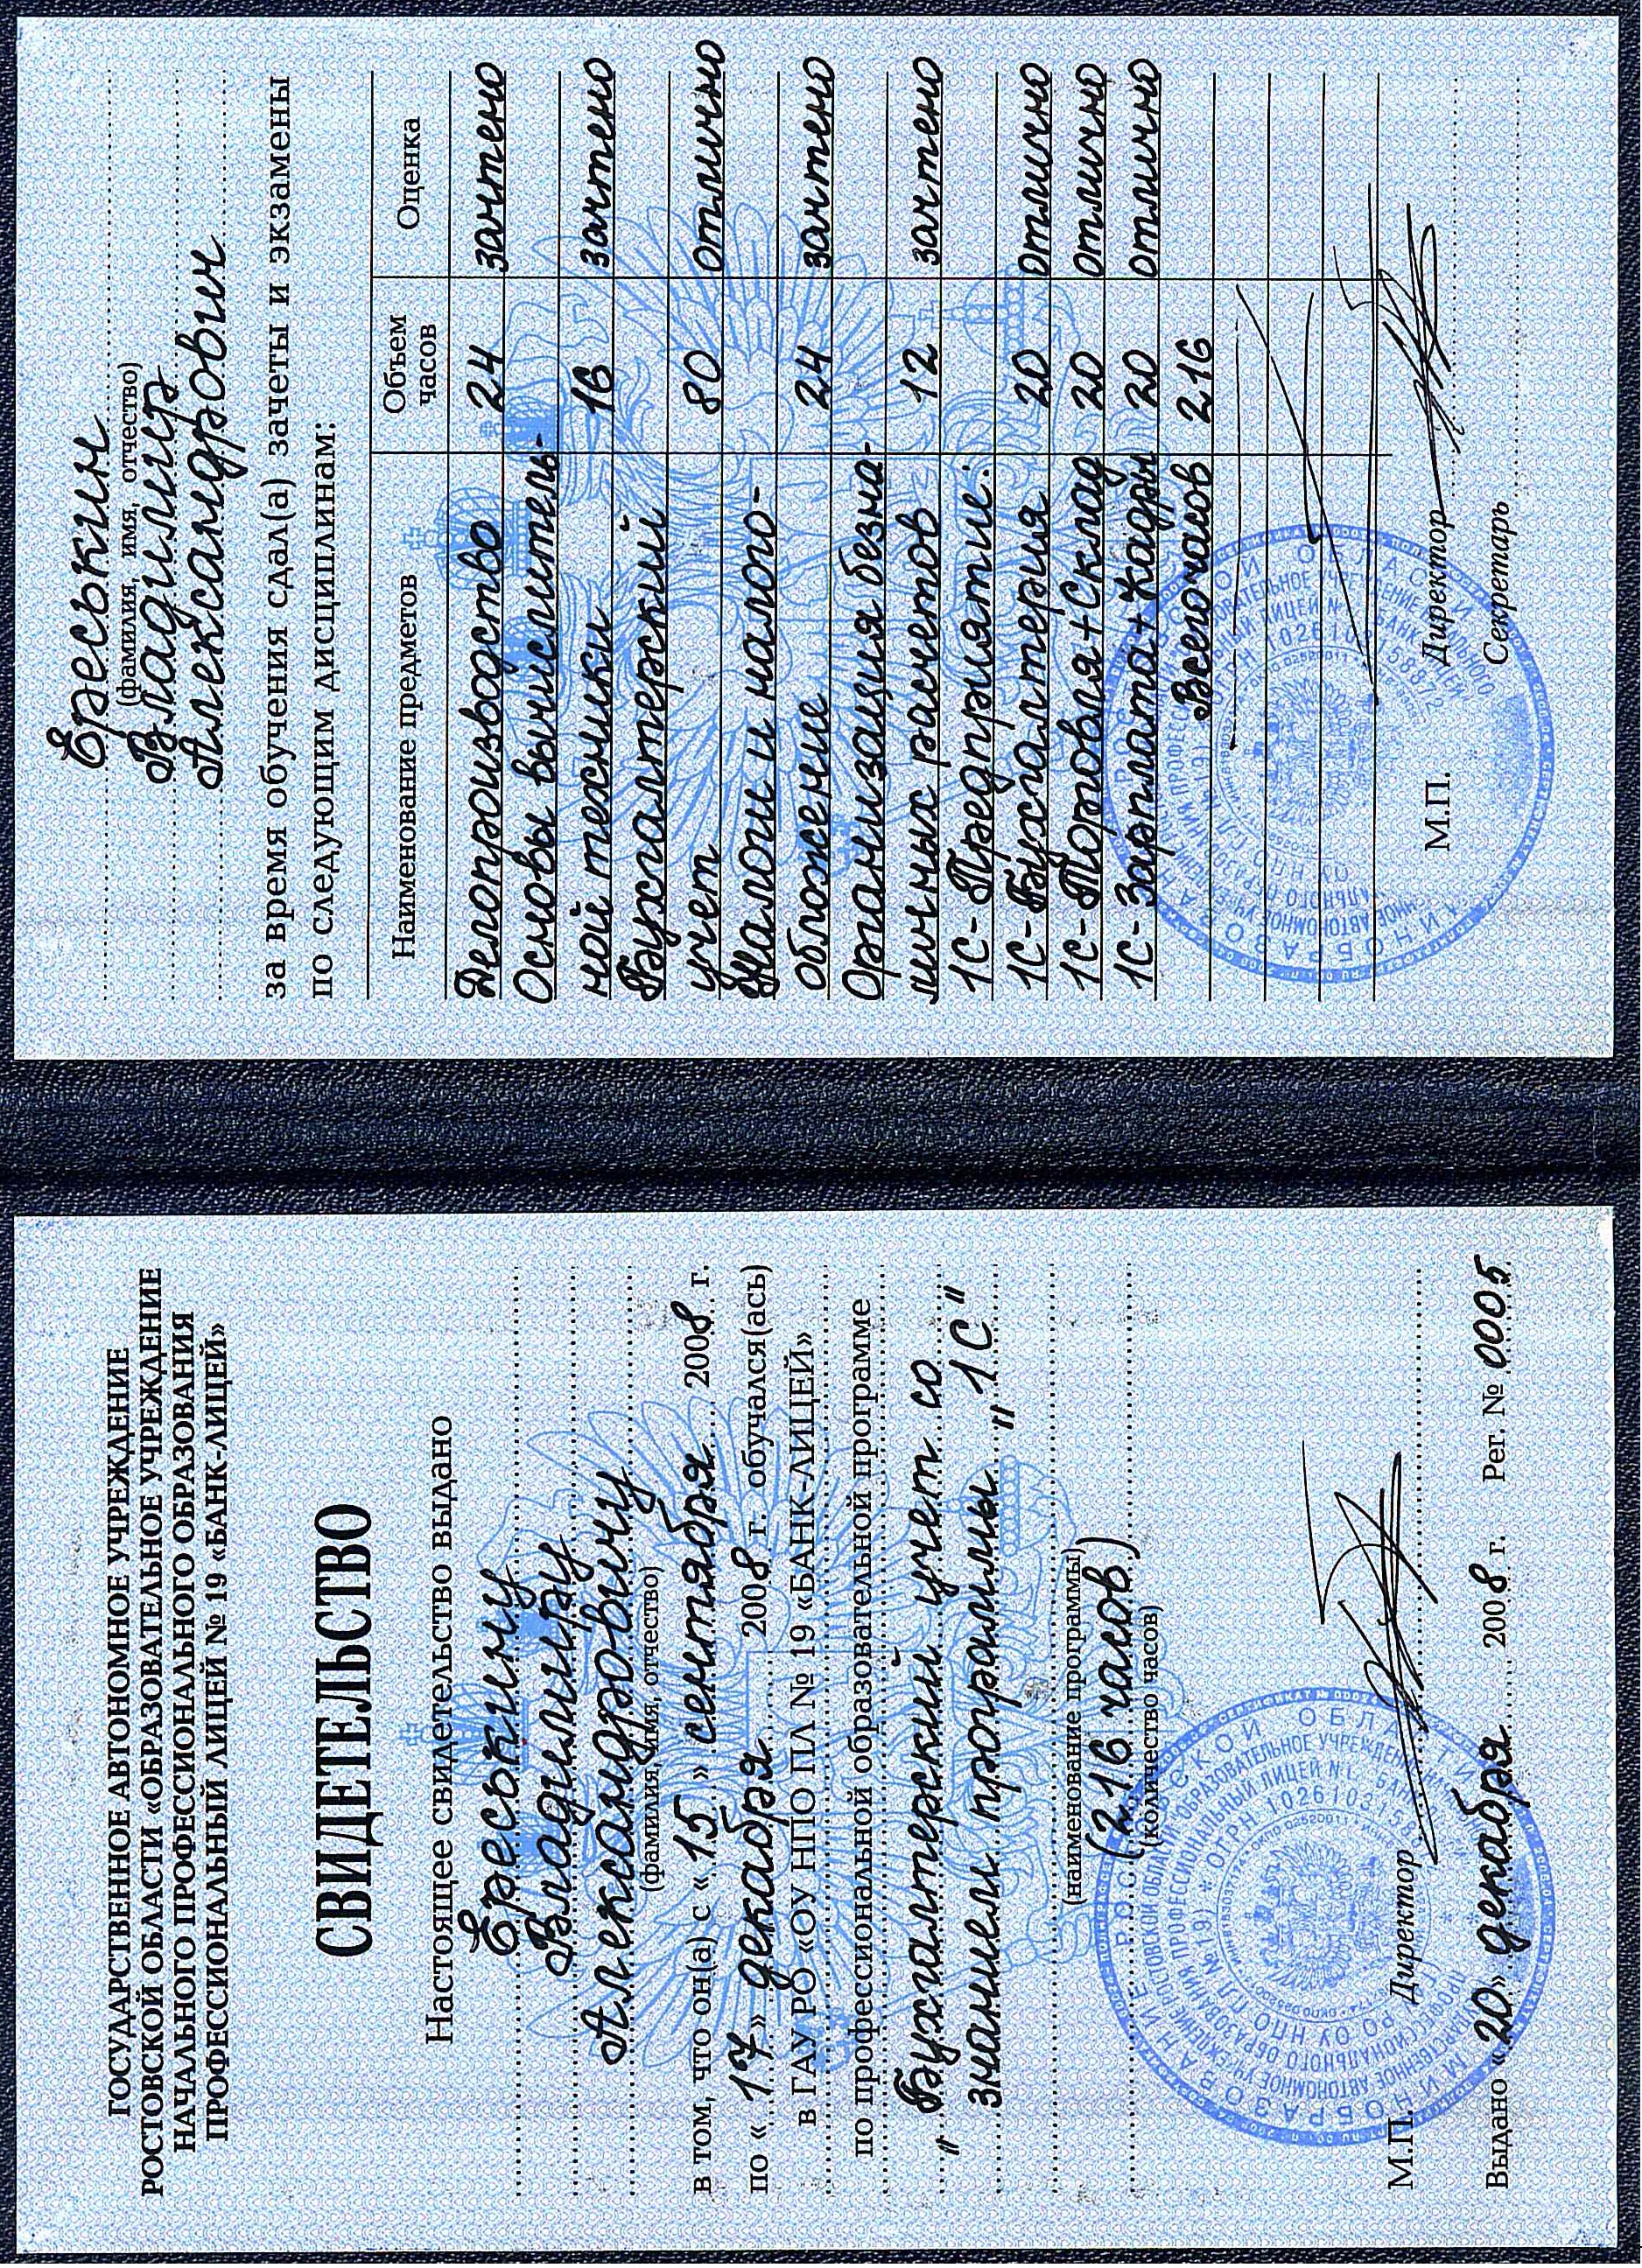 ГОСУДАРСТВЕННОЕ АВТОНОМНОЕ УЧРЕЖДЕНИЕ
РОСТОВСКОЙ ОБЛАСТИ «ОБРАЗОВАТЕЛЬНОЕ УЧРЕЖДЕНИЕ
НАЧАЛЬНОГО ПРОФЕССИОНАЛЬНОГО ОБРАЗОВАНИЯ
ПРОФЕССИОНАЛЬНЫЙ ЛИЦЕЙ № 19 «БАНК-ЛИЦЕЙ»
СВИДЕТЕЛЬСТВО
Настоящее свидетельство выдано
Ереськину
Владимиру
Александровичу
(фамилия, имя, отчество)
в том, что он(а) с «15» сентября 2008 г.
по «17» декабря 2008 г. обучался(ась)
в ГАУ РО «ОУ НПО ПЛ № 19 «БАНК-ЛИЦЕЙ»
по профессиональной образовательной программе
"Бухгалтерский учет со
знанием программы "1С"
(наименование программы)
(216 часов)
(количество часов)
М.П. Директор
Выдано «20» декабря 2008 г. Рег. № 0005
Ереськин
(фамилия, имя, отчество)
Владимир
Александрович
за время обучения сдал(а) зачеты и экзамены
по следующим дисциплинам:
Наименование предметов Объем часов Оценка
Делопроизводство 24 зачтено
Основы вычислитель-
ной техники 16 зачтено
Бухгалтерский
учет 80 отлично
Налоги и налого-
обложение 24 зачтено
Организация безна-
личных расчетов 12 зачтено
1С-Предприятие:
1С-Бухгалтерия 20 отлично
1С-Торговля+Склад 20 отлично
1С-Зарплата+Кадры 20 отлично
Всего часов 216
М.П. Директор
Секретарь